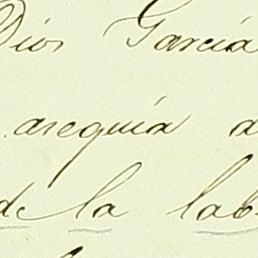 Dios García
arequia a
de la lab